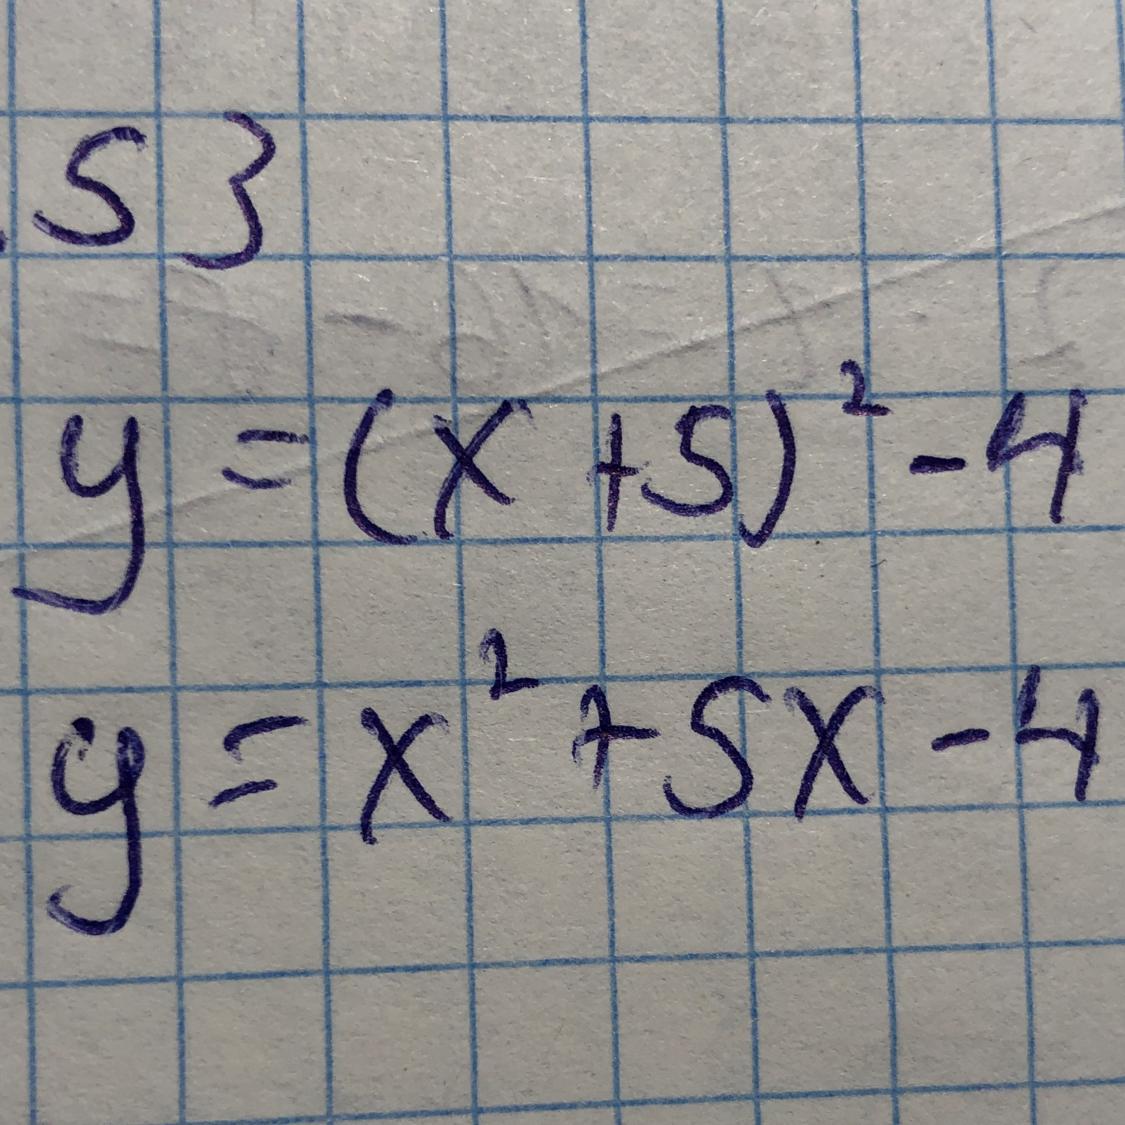 .53
y = (x + 5)² - 4
y = x² + 5x - 4